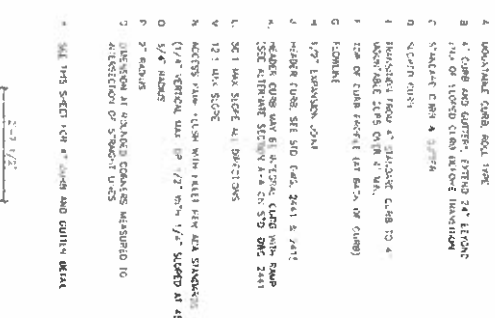 A MOUNTABLE CURB, ROLL TYPE
B 4" CURB AND GUTTER: EXTEND 24" BEYOND
END OF SLOPED CURB BEFORE TRANSITION
C STANDARD CURB &
D SLOPED CURB
E TRANSITION FROM 4" STANDARD CURB TO 4"
MOUNTABLE CURB OVER
F TOP OF CURB PROFILE (AT BACK OF CURB)
G FLOWLINE
H 1/2" EXPANSION JOINT
J HEADER CURB, SEE STD DWG. 2441 & 2415
K. HEADER CURB MAY BE INTEGRAL CURB WITH RAMP
(SEE ALTERNATE SECTION A-A ON STD DWG 2441
L. 50:1 MAX SLOPE ALL DIRECTIONS
M 12:1 MAX SLOPE
N ACCESS RAMP FLUSH WITH FILLET PER ADA STANDARDS
(1/4" VERTICAL MAX OR 1/2" WITH 1/4" SLOPED AT 45
O 3/4" RADIUS
P 2" RADIUS
Q DIMENSION AT ROUNDED CORNERS MEASURED TO
INTERSECTION OF STRAIGHT LINES
* SEE THIS SHEET FOR 4" CURB AND GUTTER DETAIL
2'-7 1/2"